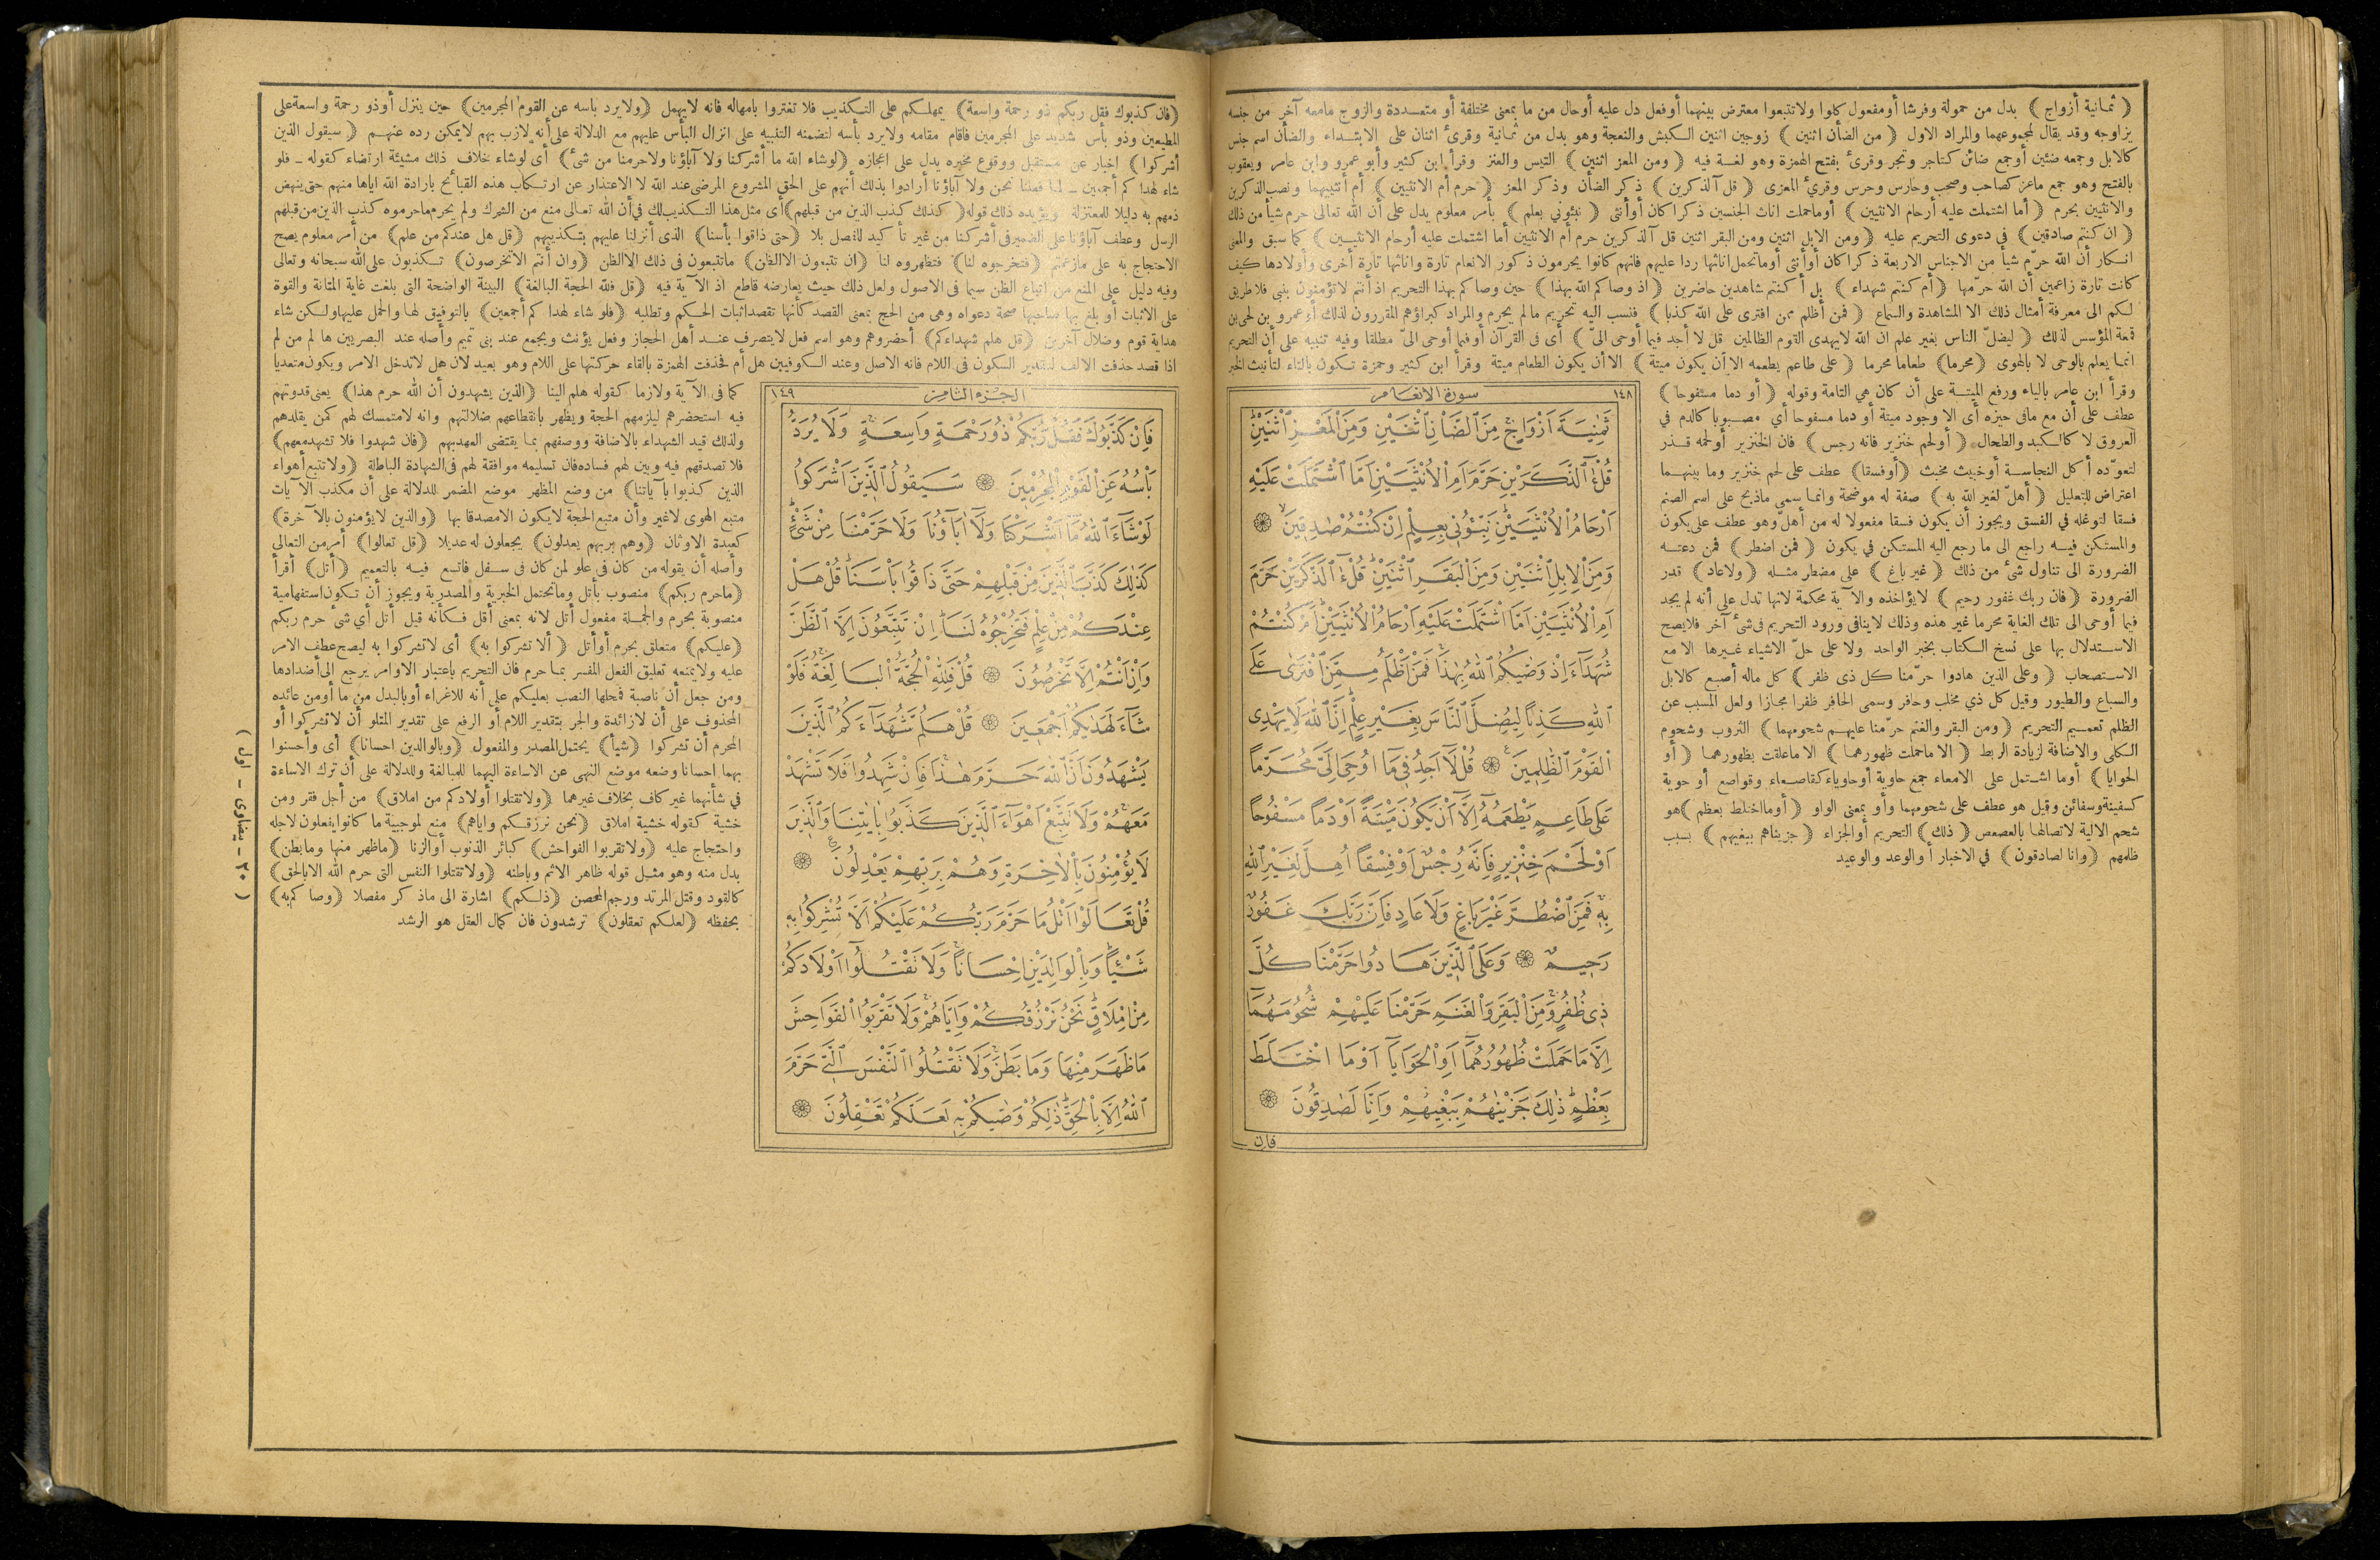 ﴿ ثمانية أزواج ﴾ بدل من حمولة وفرشا أو مفعول كلوا ولا تتبعوا معترض بينهما أو فعل دل عليه أو حال من ما بمعنى مختلفة أو متعددة والزوج ما معه آخر من جنسه
يزاوجه وقد يقال لمجموعهما والمراد الاول ﴿ من الضأن اثنين ﴾ زوجين اثنين الكبش والنعجة وهو بدل من ثمانية وقرئ اثنان على الابتداء والضأن اسم جنس
كالابل وجمعه ضئين أو جمع ضائن كتاجر وتجر وقرئ بفتح الهمزة وهو لغة فيه ﴿ ومن المعز اثنين ﴾ التيس والعنز وقرأ ابن كثير وأبو عمرو وابن عامر ويعقوب
بالفتح وهو جمع ماعز كصاحب وصحب وحارس وحرس وقرئ المعزى ﴿ قل آلذكرين ﴾ ذكر الضأن وذكر المعز ﴿ حرم أم الانثيين ﴾ أم أنثييهما ونصب الذكرين
والانثيين بحرم ﴿ أما اشتملت عليه أرحام الانثيين ﴾ أو ما حملت اناث الجنسين ذكرا كان أو أنثى ﴿ نبئوني بعلم ﴾ بأمر معلوم يدل على أن الله تعالى حرم شيأ من ذلك
﴿ ان كنتم صادقين ﴾ في دعوى التحريم عليه ﴿ ومن الابل اثنين ومن البقر اثنين قل آلذكرين حرم أم الانثيين أما اشتملت عليه أرحام الانثيين ﴾ كما سبق والمعنى
انكار أن الله حرّم شيأ من الاجناس الاربعة ذكرا كان أو أنثى أو ما تحمل اناثها ردا عليهم فانهم كانوا يحرمون ذكور الانعام تارة واناثها تارة أخرى وأولادها كيف
كانت تارة زاعمين أن الله حرّمها ﴿ أم كنتم شهداء ﴾ بل أكنتم شاهدين حاضرين ﴿ اذ وصاكم الله بهذا ﴾ حين وصاكم بهذا التحريم اذ أنتم لا تؤمنون بنبي فلا طريق
لكم الى معرفة أمثال ذلك الا المشاهدة والسماع ﴿ فمن أظلم ممن افترى على الله كذبا ﴾ فنسب اليه تحريم ما لم يحرم والمراد كبراؤهم المقررون لذلك أو عمرو بن لحى بن
قمعة المؤسس لذلك ﴿ ليضلّ الناس بغير علم ان الله لا يهدى القوم الظالمين قل لا أجد فيما أوحى الىّ ﴾ أى فى القرآن أو فيما أوحى الىّ مطلقا وفيه تنبيه على أن التحريم
انما يعلم بالوحى لا بالهوى ﴿ محرما ﴾ طعاما محرما ﴿ على طاعم يطعمه الا أن يكون ميتة ﴾ الا أن يكون الطعام ميتة وقرأ ابن كثير وحمزة تكون بالتاء لتأنيث الخبر
وقرأ ابن عامر بالياء ورفع الميتة على أن كان هي التامة وقوله ﴿ أو دما مسفوحا ﴾
عطف على أن مع ما في حيزه أى الا وجود ميتة أو دما مسفوحا أي مصبوبا كالدم في
العروق لا كالكبد والطحال ﴿ أو لحم خنزير فانه رجس ﴾ فان الخنزير أو لحمه قذر
لتعوّده أكل النجاسة أو خبيث مخبث ﴿ أو فسقا ﴾ عطف على لحم خنزير وما بينهما
اعتراض للتعليل ﴿ أهلّ لغير الله به ﴾ صفة له موضحة وانما سمى ما ذبح على اسم الصنم
فسقا لتوغله في الفسق ويجوز أن يكون فسقا مفعولا له من أهلّ وهو عطف على يكون
والمستكن فيه راجع الى ما رجع اليه المستكن في يكون ﴿ فمن اضطر ﴾ فمن دعته
الضرورة الى تناول شئ من ذلك ﴿ غير باغ ﴾ على مضطر مثله ﴿ ولا عاد ﴾ قدر
الضرورة ﴿ فان ربك غفور رحيم ﴾ لا يؤاخذه والآية محكمة لانها تدل على أنه لم يجد
فيما أوحى الى تلك الغاية محرما غير هذه وذلك لا ينافى ورود التحريم فى شئ آخر فلا يصح
الاستدلال بها على نسخ الكتاب بخبر الواحد ولا على حلّ الاشياء غيرها الا مع
الاستصحاب ﴿ وعلى الذين هادوا حرّمنا كل ذى ظفر ﴾ كل ماله أصبع كالابل
والسباع والطيور وقيل كل ذي مخلب وحافر وسمى الحافر ظفرا مجازا ولعل المسبب عن
الظلم تعميم التحريم ﴿ ومن البقر والغنم حرّمنا عليهم شحومهما ﴾ الثروب وشحوم
الكلى والاضافة لزيادة الربط ﴿ الا ما حملت ظهورهما ﴾ الا ما علقت بظهورهما ﴿ أو
الحوايا ﴾ أو ما اشتمل على الامعاء جمع حاوية أو حاوياء كقاصعاء وقواصع أو حوية
كسفينة وسفائن وقيل هو عطف على شحومهما وأو بمعنى الواو ﴿ أو ما اختلط بعظم ﴾ هو
شحم الالية لاتصالها بالعصعص ﴿ ذلك ﴾ التحريم أو الجزاء ﴿ جزيناهم ببغيهم ﴾ بسبب
ظلمهم ﴿ وانا لصادقون ﴾ في الاخبار أو الوعد والوعيد
١٤٨ سورة الانعام
ثَمٰنِيَةَ اَزْوَاجٍ مِنَ الضَّاْنِ اثْنَيْنِ وَمِنَ الْمَعْزِ اثْنَيْنِ
قُلْ ءٰٓالذَّكَرَيْنِ حَرَّمَ اَمِ الْاُنْثَيَيْنِ اَمَّا اشْتَمَلَتْ عَلَيْهِ
اَرْحَامُ الْاُنْثَيَيْنِ نَبِّئُونِى بِعِلْمٍ اِنْ كُنْتُمْ صٰدِقِينَ
وَمِنَ الْاِبِلِ اثْنَيْنِ وَمِنَ الْبَقَرِ اثْنَيْنِ قُلْ ءٰٓالذَّكَرَيْنِ حَرَّمَ
اَمِ الْاُنْثَيَيْنِ اَمَّا اشْتَمَلَتْ عَلَيْهِ اَرْحَامُ الْاُنْثَيَيْنِ اَمْ كُنْتُمْ
شُهَدَآءَ اِذْ وَصّٰيكُمُ اللّٰهُ بِهٰذَا فَمَنْ اَظْلَمُ مِمَّنِ افْتَرٰى عَلَى
اللّٰهِ كَذِبًا لِيُضِلَّ النَّاسَ بِغَيْرِ عِلْمٍ اِنَّ اللّٰهَ لَا يَهْدِى
الْقَوْمَ الظّٰلِمِينَ قُلْ لَآ اَجِدُ فِى مَآ اُوحِىَ اِلَىَّ مُحَرَّمًا
عَلٰى طَاعِمٍ يَطْعَمُهُٓ اِلَّآ اَنْ يَكُونَ مَيْتَةً اَوْ دَمًا مَسْفُوحًا
اَوْ لَحْمَ خِنْزِيرٍ فَاِنَّهُ رِجْسٌ اَوْ فِسْقًا اُهِلَّ لِغَيْرِ اللّٰهِ
بِهِ فَمَنِ اضْطُرَّ غَيْرَ بَاغٍ وَلَا عَادٍ فَاِنَّ رَبَّكَ غَفُورٌ
رَحِيمٌ وَعَلَى الَّذِينَ هَادُوا حَرَّمْنَا كُلَّ
ذِى ظُفُرٍ وَمِنَ الْبَقَرِ وَالْغَنَمِ حَرَّمْنَا عَلَيْهِمْ شُحُومَهُمَآ
اِلَّا مَا حَمَلَتْ ظُهُورُهُمَآ اَوِ الْحَوَايَآ اَوْ مَا اخْتَلَطَ
بِعَظْمٍ ذٰلِكَ جَزَيْنٰهُمْ بِبَغْيِهِمْ وَاِنَّا لَصٰدِقُونَ
فان
﴿فان كذبوك فقل ربكم ذو رحمة واسعة﴾ يمهلكم على التكذيب فلا تغتروا بامهاله فانه لا يهمل ﴿ولا يرد بأسه عن القوم المجرمين﴾ حين ينزل أو ذو رحمة واسعة على
المطيعين وذو بأس شديد على المجرمين فاقام مقامه ولا يرد بأسه لتضمنه التنبيه على انزال البأس عليهم مع الدلالة على أنه لازب بهم لا يمكن رده عنهم ﴿ سيقول الذين
أشركوا ﴾ اخبار عن مستقبل ووقوع مخبره يدل على اعجازه ﴿لو شاء الله ما أشركنا ولا آباؤنا ولا حرمنا من شئ﴾ أى لو شاء خلاف ذلك مشيئة ارتضاء كقوله ـ فلو
شاء لهداكم أجمعين ـ لما فعلنا نحن ولا آباؤنا أرادوا بذلك أنهم على الحق المشروع المرضى عند الله لا الاعتذار عن ارتكاب هذه القبائح بارادة الله اياها منهم حتى ينهض
ذمهم به دليلا للمعتزلة ويؤيده ذلك قوله ﴿ كذلك كذب الذين من قبلهم﴾ أى مثل هذا التكذيب لك في أن الله تعالى منع من الشرك ولم يحرم ما حرموه كذب الذين من قبلهم
الرسل وعطف آباؤنا على الضمير فى أشركنا من غير تأكيد للفصل بلا ﴿حتى ذاقوا بأسنا﴾ الذى أنزلنا عليهم بتكذيبهم ﴿قل هل عندكم من علم﴾ من أمر معلوم يصح
الاحتجاج به على ما زعمتم ﴿فتخرجوه لنا﴾ فتظهروه لنا ﴿ان تتبعون الا الظن﴾ ما تتبعون فى ذلك الا الظن ﴿وان أنتم الا تخرصون﴾ تكذبون على الله سبحانه وتعالى
وفيه دليل على المنع من اتباع الظن سيما فى الاصول ولعل ذلك حيث يعارضه قاطع اذ الآية فيه ﴿قل فلله الحجة البالغة﴾ البينة الواضحة التى بلغت غاية المتانة والقوة
على الاثبات أو بلغ بها صاحبها صحة دعواه وهى من الحج بمعنى القصد كأنها تقصد اثبات الحكم وتطلبه ﴿فلو شاء لهداكم أجمعين﴾ بالتوفيق لها والحمل عليها ولكن شاء
هداية قوم وضلال آخرين ﴿قل هلم شهداءكم﴾ أحضروهم وهو اسم فعل لا يتصرف عند أهل الحجاز وفعل يؤنث ويجمع عند بنى تميم وأصله عند البصريين ها لم من لم
اذا قصد حذفت الالف لتقدير السكون فى اللام فانه الاصل وعند الكوفيين هل أم فحذفت الهمزة بالقاء حركتها على اللام وهو بعيد لان هل لا تدخل الامر ويكون متعديا
كما فى الآية ولازما كقوله هلم الينا ﴿الذين يشهدون أن الله حرم هذا﴾ يعنى قدوتهم
فيه استحضرهم ليلزمهم الحجة ويظهر بانقطاعهم ضلالتهم وانه لا متمسك لهم كمن يقلدهم
ولذلك قيد الشهداء بالاضافة ووصفهم بما يقتضى العهد بهم ﴿فان شهدوا فلا تشهد معهم﴾
فلا تصدقهم فيه وبين لهم فساده فان تسليمه موافقة لهم فى الشهادة الباطلة ﴿ولا تتبع أهواء
الذين كذبوا بآياتنا﴾ من وضع المظهر موضع المضمر للدلالة على أن مكذب الآيات
متبع الهوى لا غير وأن متبع الحجة لا يكون الا مصدقا بها ﴿والذين لا يؤمنون بالآخرة﴾
كعبدة الاوثان ﴿وهم بربهم يعدلون﴾ يجعلون له عديلا ﴿قل تعالوا﴾ أمر من التعالى
وأصله أن يقوله من كان فى علو لمن كان فى سفل فاتسع فيه بالتعميم ﴿أتل﴾ أقرأ
﴿ما حرم ربكم﴾ منصوب بأتل وما تحتمل الخبرية والمصدرية ويجوز أن تكون استفهامية
منصوبة بحرم والجملة مفعول أتل لانه بمعنى أقل فكأنه قيل أتل أي شئ حرم ربكم
﴿عليكم﴾ متعلق بحرم أو أتل ﴿ألا تشركوا به﴾ أى لا تشركوا به ليصح عطف الامر
عليه ولا يمنعه تعليق الفعل المفسر بما حرم فان التحريم باعتبار الاوامر يرجع الى أضدادها
ومن جعل أن ناصبة فمحلها النصب بعليكم على أنه للاغراء أو بالبدل من ما أو من عائده
المحذوف على أن لا زائدة والجر بتقدير اللام أو الرفع على تقدير المتلو أن لا تشركوا أو
المحرم أن تشركوا ﴿شيأ﴾ يحتمل المصدر والمفعول ﴿وبالوالدين احسانا﴾ أى وأحسنوا
بهما احسانا وضعه موضع النهى عن الاساءة اليهما للمبالغة وللدلالة على أن ترك الاساءة
في شأنهما غير كاف بخلاف غيرهما ﴿ولا تقتلوا أولادكم من املاق﴾ من أجل فقر ومن
خشية كقوله خشية املاق ﴿نحن نرزقكم واياهم﴾ منع لموجبية ما كانوا يفعلون لاجله
واحتجاج عليه ﴿ولا تقربوا الفواحش﴾ كبائر الذنوب أو الزنا ﴿ما ظهر منها وما بطن﴾
بدل منه وهو مثل قوله ظاهر الاثم وباطنه ﴿ولا تقتلوا النفس التى حرم الله الا بالحق﴾
كالقود وقتل المرتد ورجم المحصن ﴿ذلكم﴾ اشارة الى ما ذكر مفصلا ﴿وصاكم به﴾
بحفظه ﴿لعلكم تعقلون﴾ ترشدون فان كمال العقل هو الرشد
الجزء الثامن ١٤٩
فَاِنْ كَذَّبُوكَ فَقُلْ رَبُّكُمْ ذُو رَحْمَةٍ وَاسِعَةٍ وَلَا يُرَدُّ
بَاْسُهُ عَنِ الْقَوْمِ الْمُجْرِمِينَ سَيَقُولُ الَّذِينَ اَشْرَكُوا
لَوْ شَآءَ اللّٰهُ مَآ اَشْرَكْنَا وَلَآ اٰبَآؤُنَا وَلَا حَرَّمْنَا مِنْ شَىْءٍ
كَذٰلِكَ كَذَّبَ الَّذِينَ مِنْ قَبْلِهِمْ حَتّٰى ذَاقُوا بَاْسَنَا قُلْ هَلْ
عِنْدَكُمْ مِنْ عِلْمٍ فَتُخْرِجُوهُ لَنَا اِنْ تَتَّبِعُونَ اِلَّا الظَّنَّ
وَاِنْ اَنْتُمْ اِلَّا تَخْرُصُونَ قُلْ فَلِلّٰهِ الْحُجَّةُ الْبَالِغَةُ فَلَوْ
شَآءَ لَهَدٰيكُمْ اَجْمَعِينَ قُلْ هَلُمَّ شُهَدَآءَكُمُ الَّذِينَ
يَشْهَدُونَ اَنَّ اللّٰهَ حَرَّمَ هٰذَا فَاِنْ شَهِدُوا فَلَا تَشْهَدْ
مَعَهُمْ وَلَا تَتَّبِعْ اَهْوَآءَ الَّذِينَ كَذَّبُوا بِاٰيٰتِنَا وَالَّذِينَ
لَا يُؤْمِنُونَ بِالْاٰخِرَةِ وَهُمْ بِرَبِّهِمْ يَعْدِلُونَ
قُلْ تَعَالَوْا اَتْلُ مَا حَرَّمَ رَبُّكُمْ عَلَيْكُمْ اَلَّا تُشْرِكُوا بِهِ
شَيْئًا وَبِالْوَالِدَيْنِ اِحْسَانًا وَلَا تَقْتُلُوٓا اَوْلَادَكُمْ
مِنْ اِمْلَاقٍ نَحْنُ نَرْزُقُكُمْ وَاِيَّاهُمْ وَلَا تَقْرَبُوا الْفَوَاحِشَ
مَا ظَهَرَ مِنْهَا وَمَا بَطَنَ وَلَا تَقْتُلُوا النَّفْسَ الَّتِى حَرَّمَ
اللّٰهُ اِلَّا بِالْحَقِّ ذٰلِكُمْ وَصّٰيكُمْ بِهِ لَعَلَّكُمْ تَعْقِلُونَ
( ٢٠ ـ بيضاوى ـ اول )